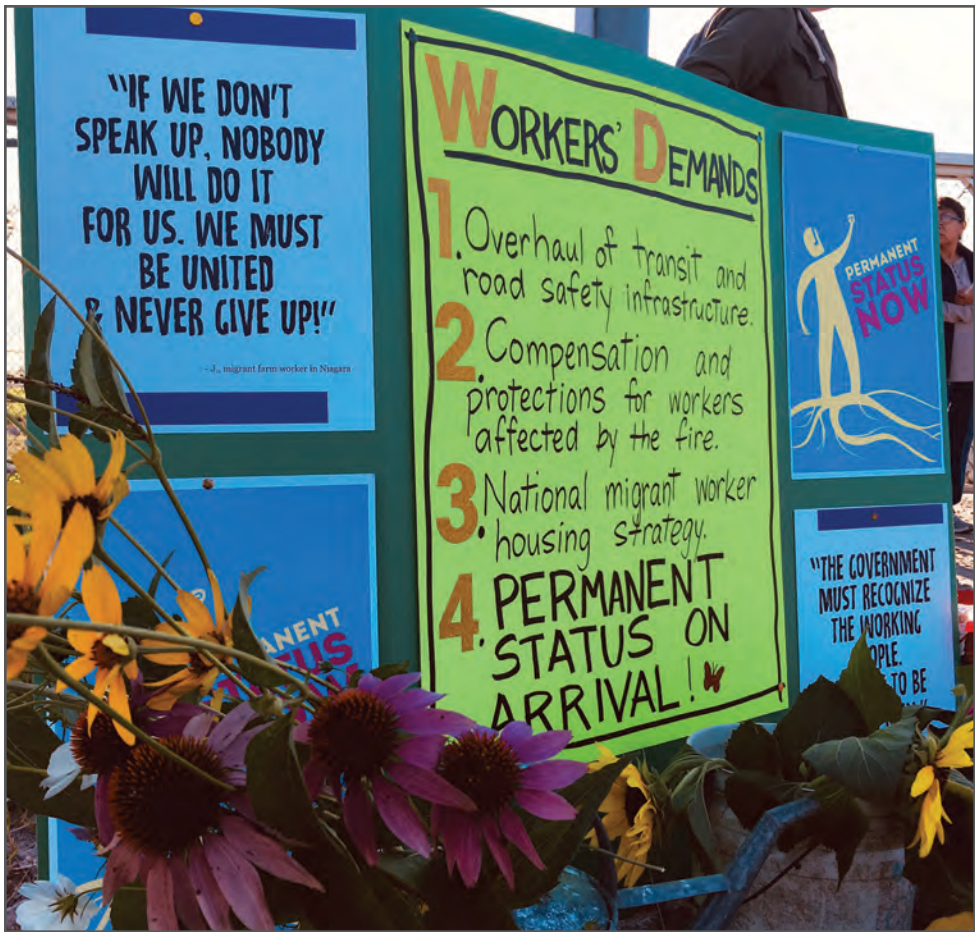 "IF WE DON'T
SPEAK UP, NOBODY
WILL DO IT
FOR US. WE MUST
BE UNITED
& NEVER GIVE UP!"
- J., migrant farm worker in Niagara
WORKERS' DEMANDS
1. Overhaul of transit and
road safety infrastructure.
2. Compensation and
protections for workers
affected by the fire.
3. National migrant worker
housing strategy.
4. PERMANENT
STATUS ON
ARRIVAL!
PERMANENT
STATUS
NOW
"THE GOVERNMENT
MUST RECOGNIZE
THE WORKING
OPLE.
TO BE
ANENT
TUS